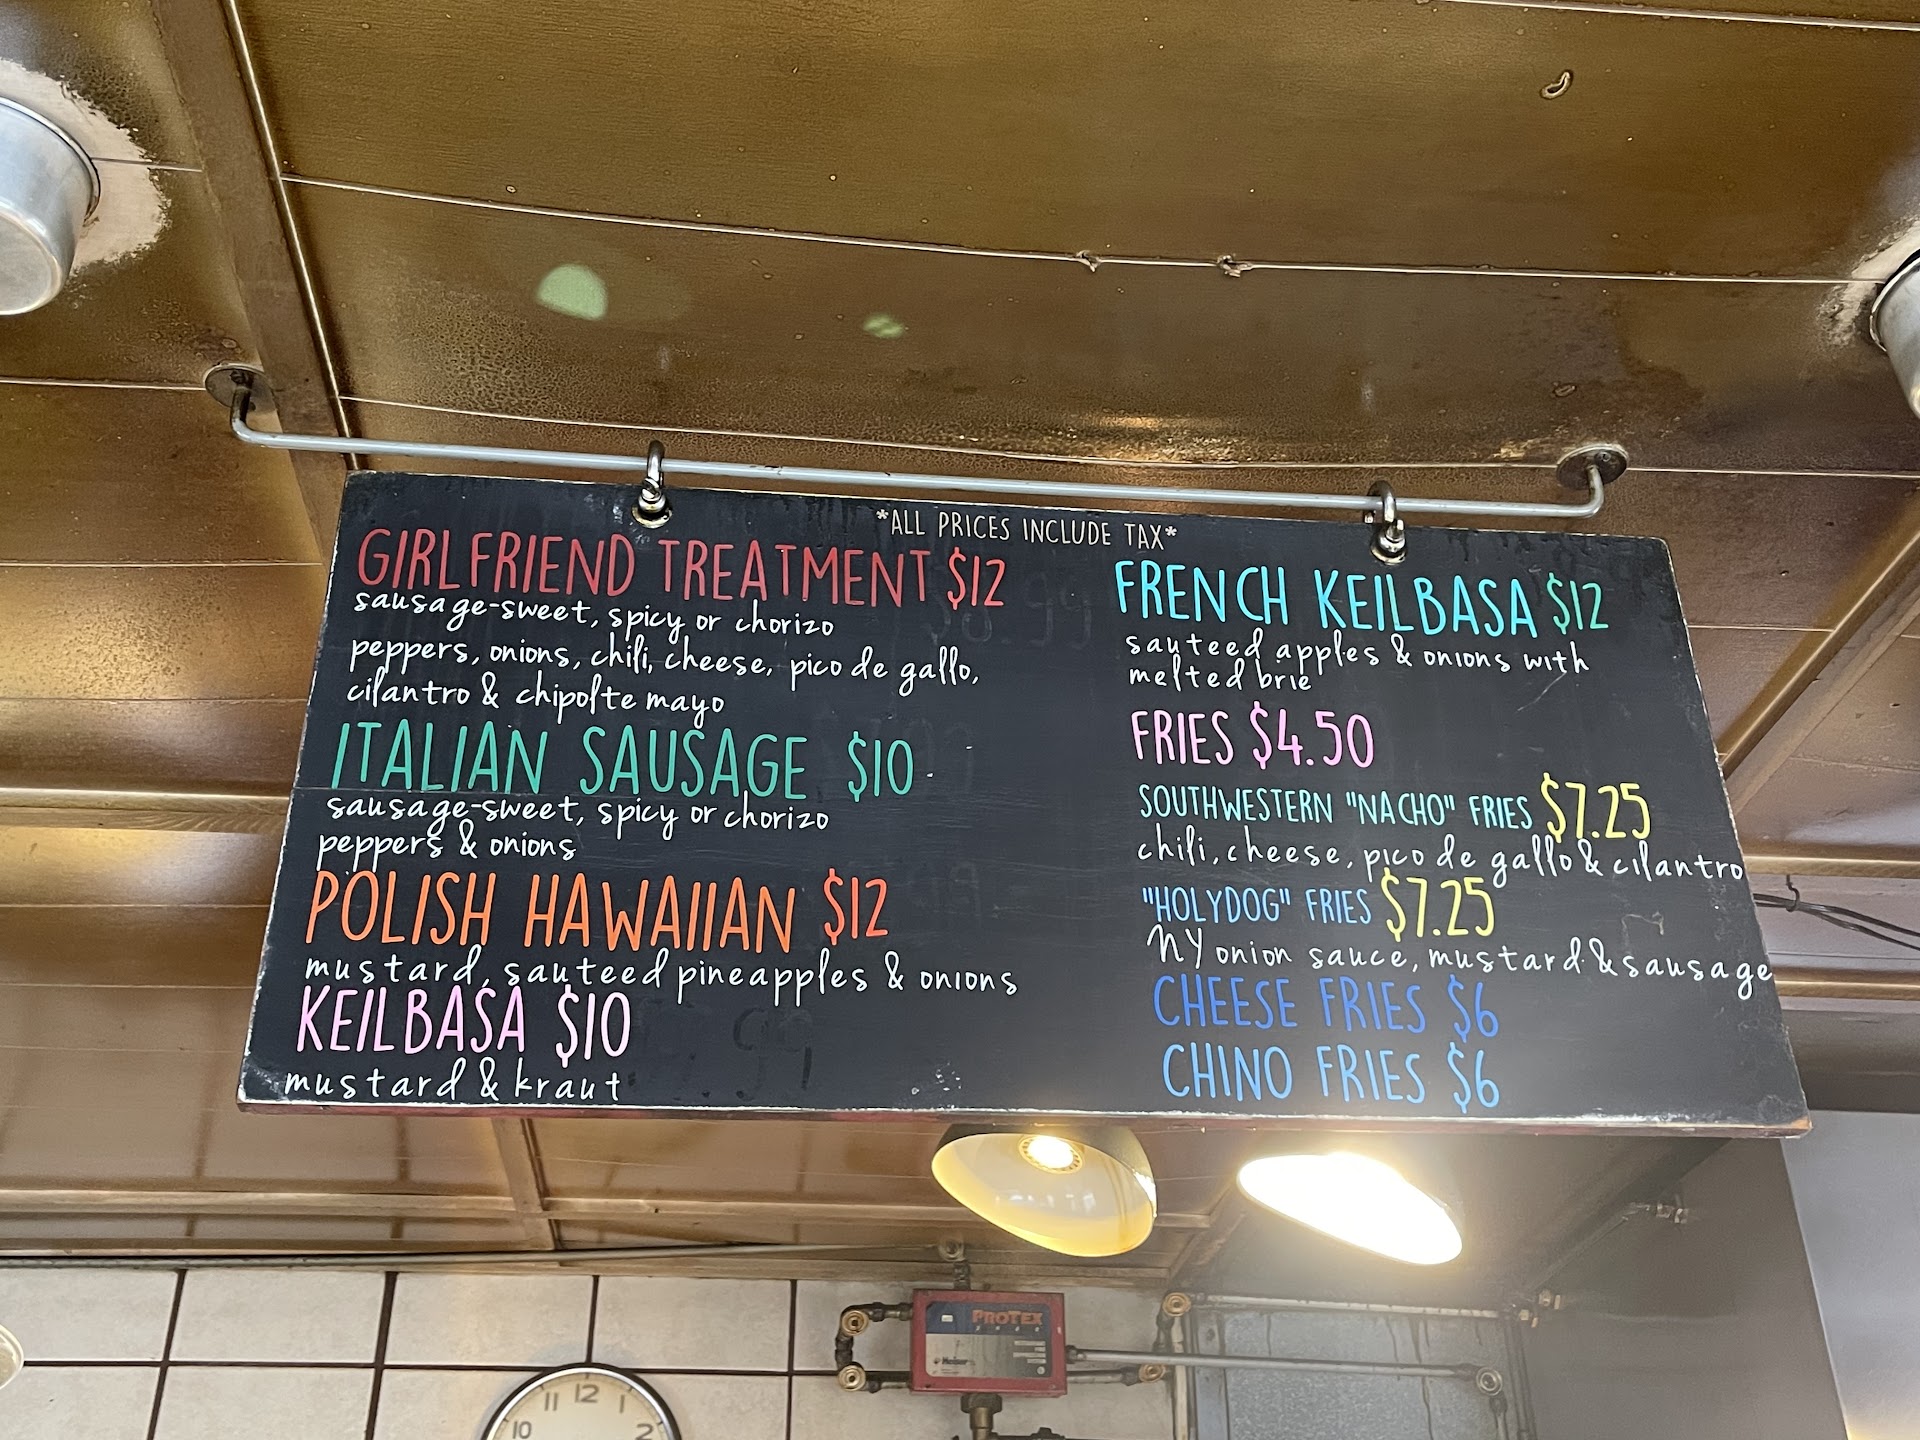 *ALL PRICES INCLUDE TAX*
GIRLFRIEND TREATMENT $12
sausage-sweet, spicy or chorizo
peppers, onions, chili, cheese, pico de gallo,
cilantro & chipolte mayo
ITALIAN SAUSAGE $10
sausage-sweet, spicy or chorizo
peppers & onions
POLISH HAWAIIAN $12
mustard, sauteed pineapples & onions
KEILBASA $10
mustard & kraut
FRENCH KEILBASA $12
sauteed apples & onions with
melted brie
FRIES $4.50
SOUTHWESTERN "NACHO" FRIES $7.25
chili, cheese, pico de gallo & cilantro
"HOLYDOG" FRIES $7.25
NY onion sauce, mustard & sausage
CHEESE FRIES $6
CHINO FRIES $6
PROTEX
Heiser
11 12 1
10 2